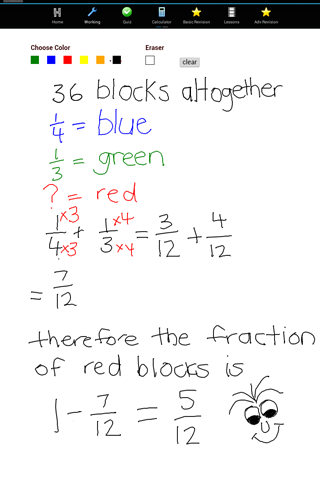 Home Working Quiz Calculator Basic Revision Lessons Adv Revision
Choose Color Eraser
clear
36 blocks altogether
1/4 = blue
1/3 = green
? = red
1×3/4×3 + 1×4/3×4 = 3/12 + 4/12
= 7/12
therefore the fraction
of red blocks is
1 - 7/12 = 5/12